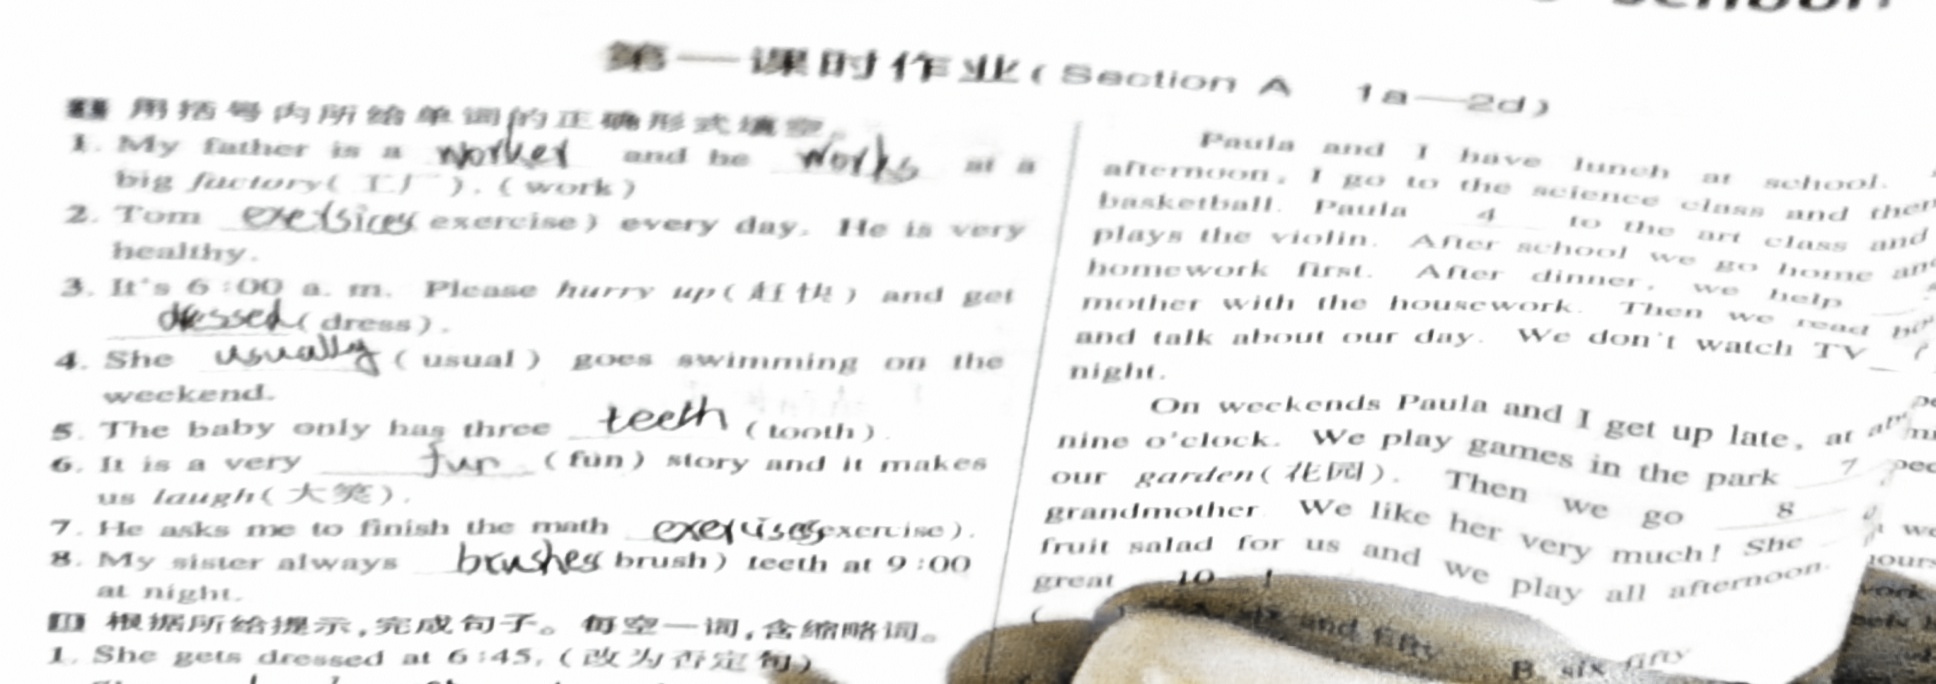 第一课时作业(Section A 1a—2d)
用括号内所给单词的正确形式填空。
1. My father is a worker and he works at a
big factory(工厂). (work)
2. Tom exersices exercise) every day. He is very
healthy.
3. It's 6:00 a. m. Please hurry up(赶快) and get
dressed (dress).
4. She usually (usual) goes swimming on the
weekend.
5. The baby only has three teeth (tooth).
6. It is a very fun (fun) story and it makes
us laugh(大笑).
7. He asks me to finish the math exercises exercise).
8. My sister always brushes brush) teeth at 9:00
at night.
Ⅱ 根据所给提示,完成句子。每空一词,含缩略词。
1. She gets dressed at 6:45. (改为否定句)
Paula and I have lunch at school.
afternoon, I go to the science class and then
basketball. Paula 4 to the art class and
plays the violin. After school we go home and
homework first. After dinner, we help
mother with the housework. Then we read
and talk about our day. We don't watch TV
night.
On weekends Paula and I get up late, at
nine o'clock. We play games in the park 7
our garden(花园). Then we go 8
grandmother. We like her very much! She
fruit salad for us and we play all afternoon.
great 10 !
and fifty B six fifty